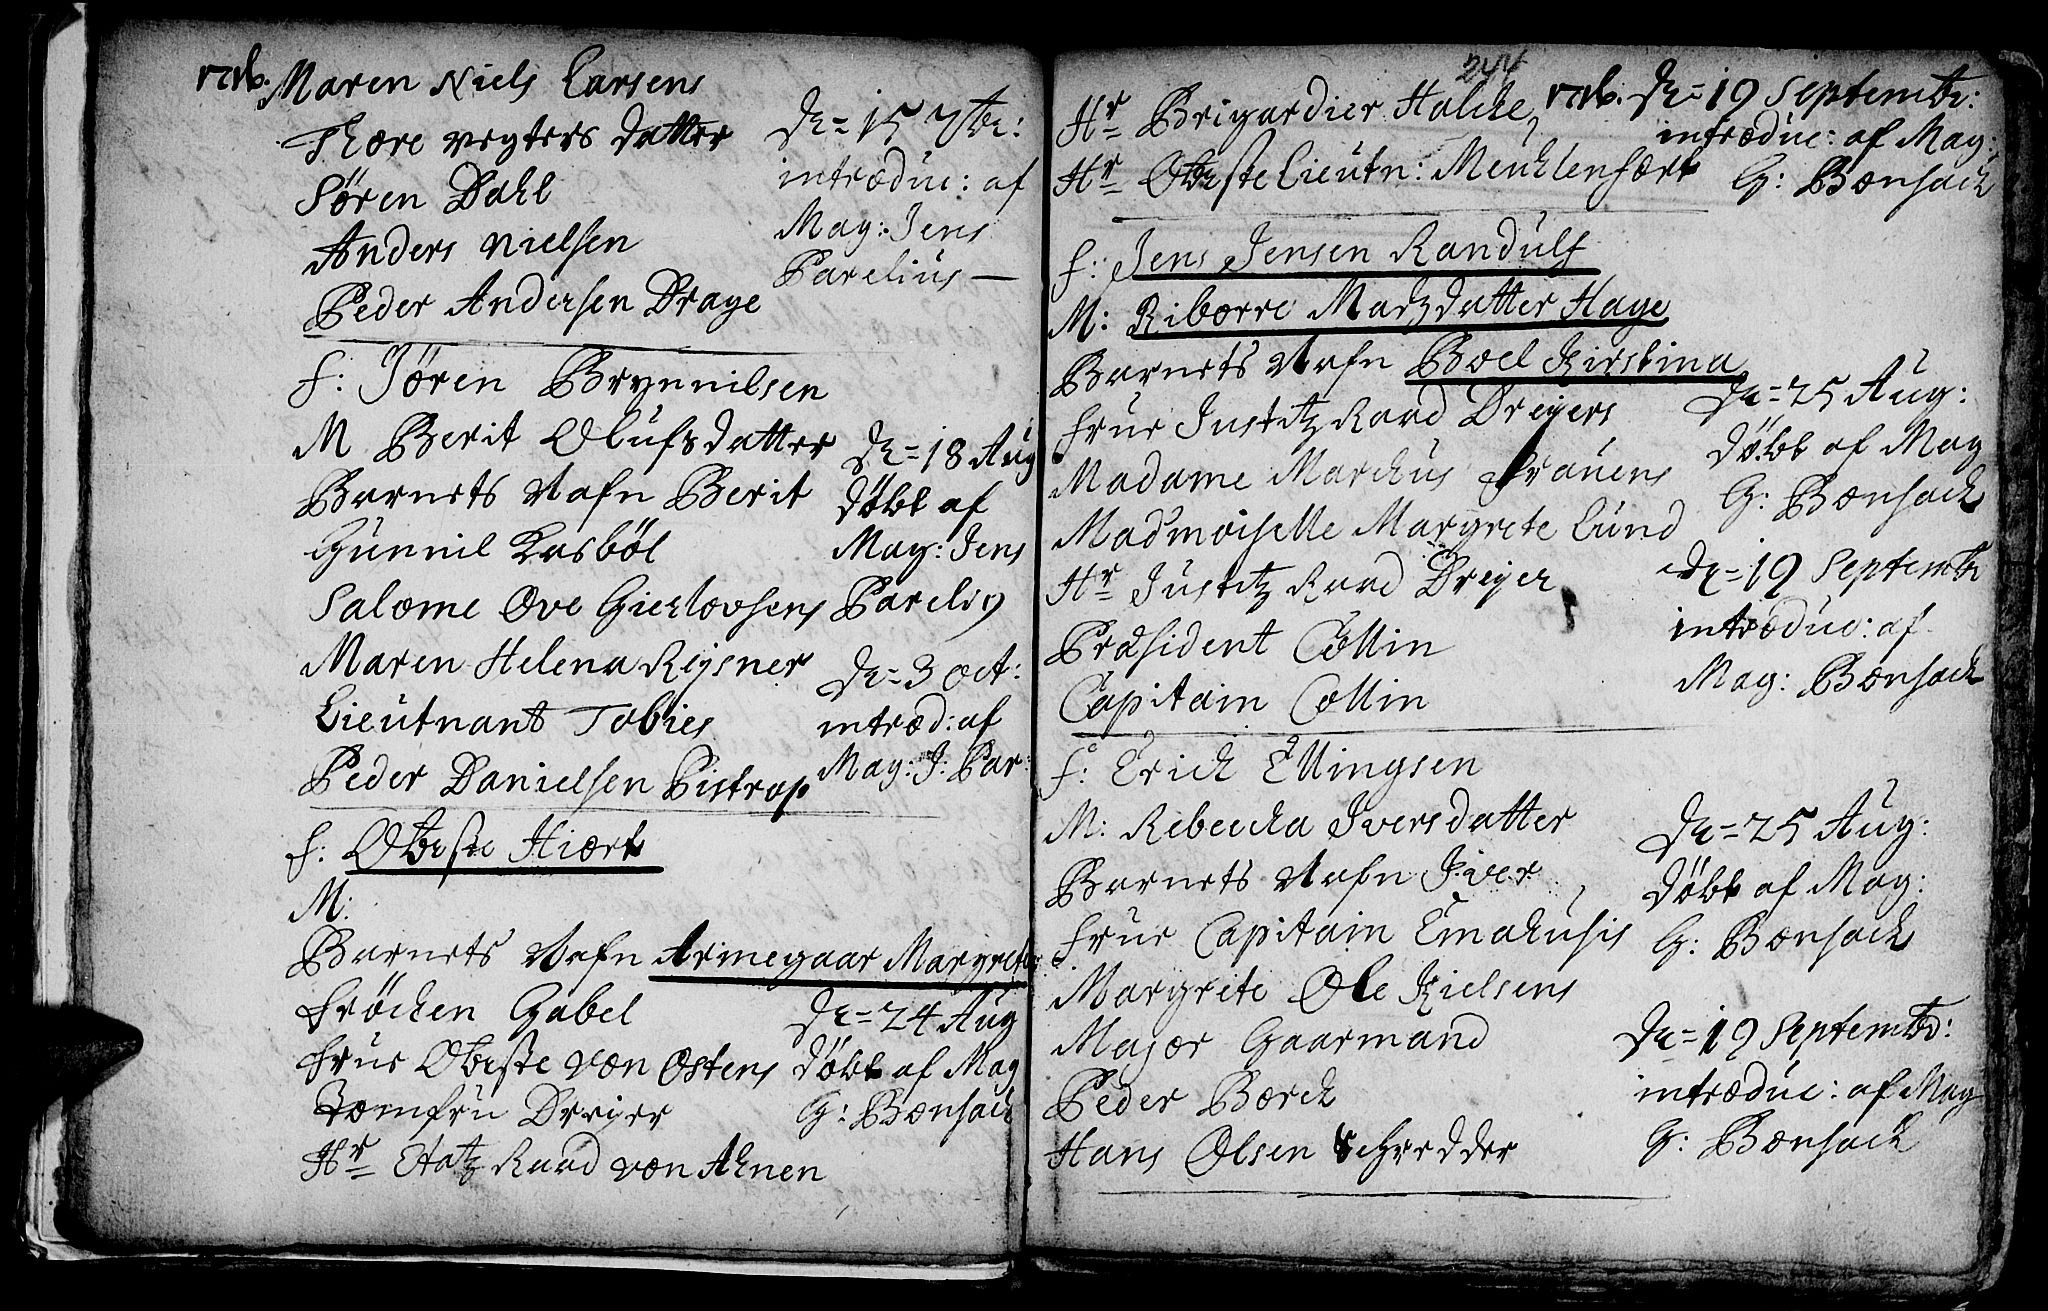 1716. Maren Niels Larsens
Thore vegters datter
Sören Dahl
Anders Nielsen
Peder Andersen Drage
D = 15 7br:
introduc: af
Mag: Jens
Parelius —
f: Jören Brynnilsen
M Berit Olufsdatter
Barnets Nafn Berit
Gunnil Kasböl
Salome Ove Gierlovsens
Maren Helena Reisner
Lieutnant Tobies
Peder Danielsen Pistrop
D = 18 Aug
döbt af
Mag: Jens
Pareli9
D = 3 oct:
introd: af
Mag: J: Par:
f: Obrste Hiort
M:
Barnets Nafn Armegaar Margrete
fröcken Gabel
frue Obrste von Ostens
Jomfru Dreier
Hr Etatz Raad von Ahnen
D = 24 Aug
döbt af Mag
G: Bonsach
244
Hr Brigardier Halcke
Hr Obrste Lieutn: Meuhlenfort
1716. D = 19 Septembr:
introduc: af Mag:
G: Bonsach
f: Jens Jensen Randulf
M: Riborre Madzdatter Hage
Barnets Nafn Boel Kirstina
frue Justitz Raad Dreyers
Madame Marckus Frauens
Madmoiselle Margrete Lund
Hr Justitz Raad Dreyer
Præsident Collin
Capitain Collin
D = 25 Aug:
döbt af Mag
G: Bonsach
D = 19 Septembr
introduc: af
Mag: Bonsach
f: Erich Ellingsen
M: Rebecka Iversdatter
Barnets Nafn Iver
frue Capitain Emahusis
Margrite Ole Kielsens
Major Gaarmand
Peder Borch
Hans Olsen Schredder
D = 25 Aug:
döbt af Mag:
G: Bonsach
D = 19 Septembr:
introduc: af Mag
G: Bonsach